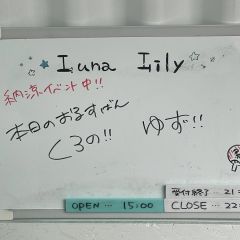 Luna Lily
納涼イベント中!!
本日のおるすばん
くろの!! ゆず!!
受付終了... 21:
OPEN... 15:00
CLOSE... 22: